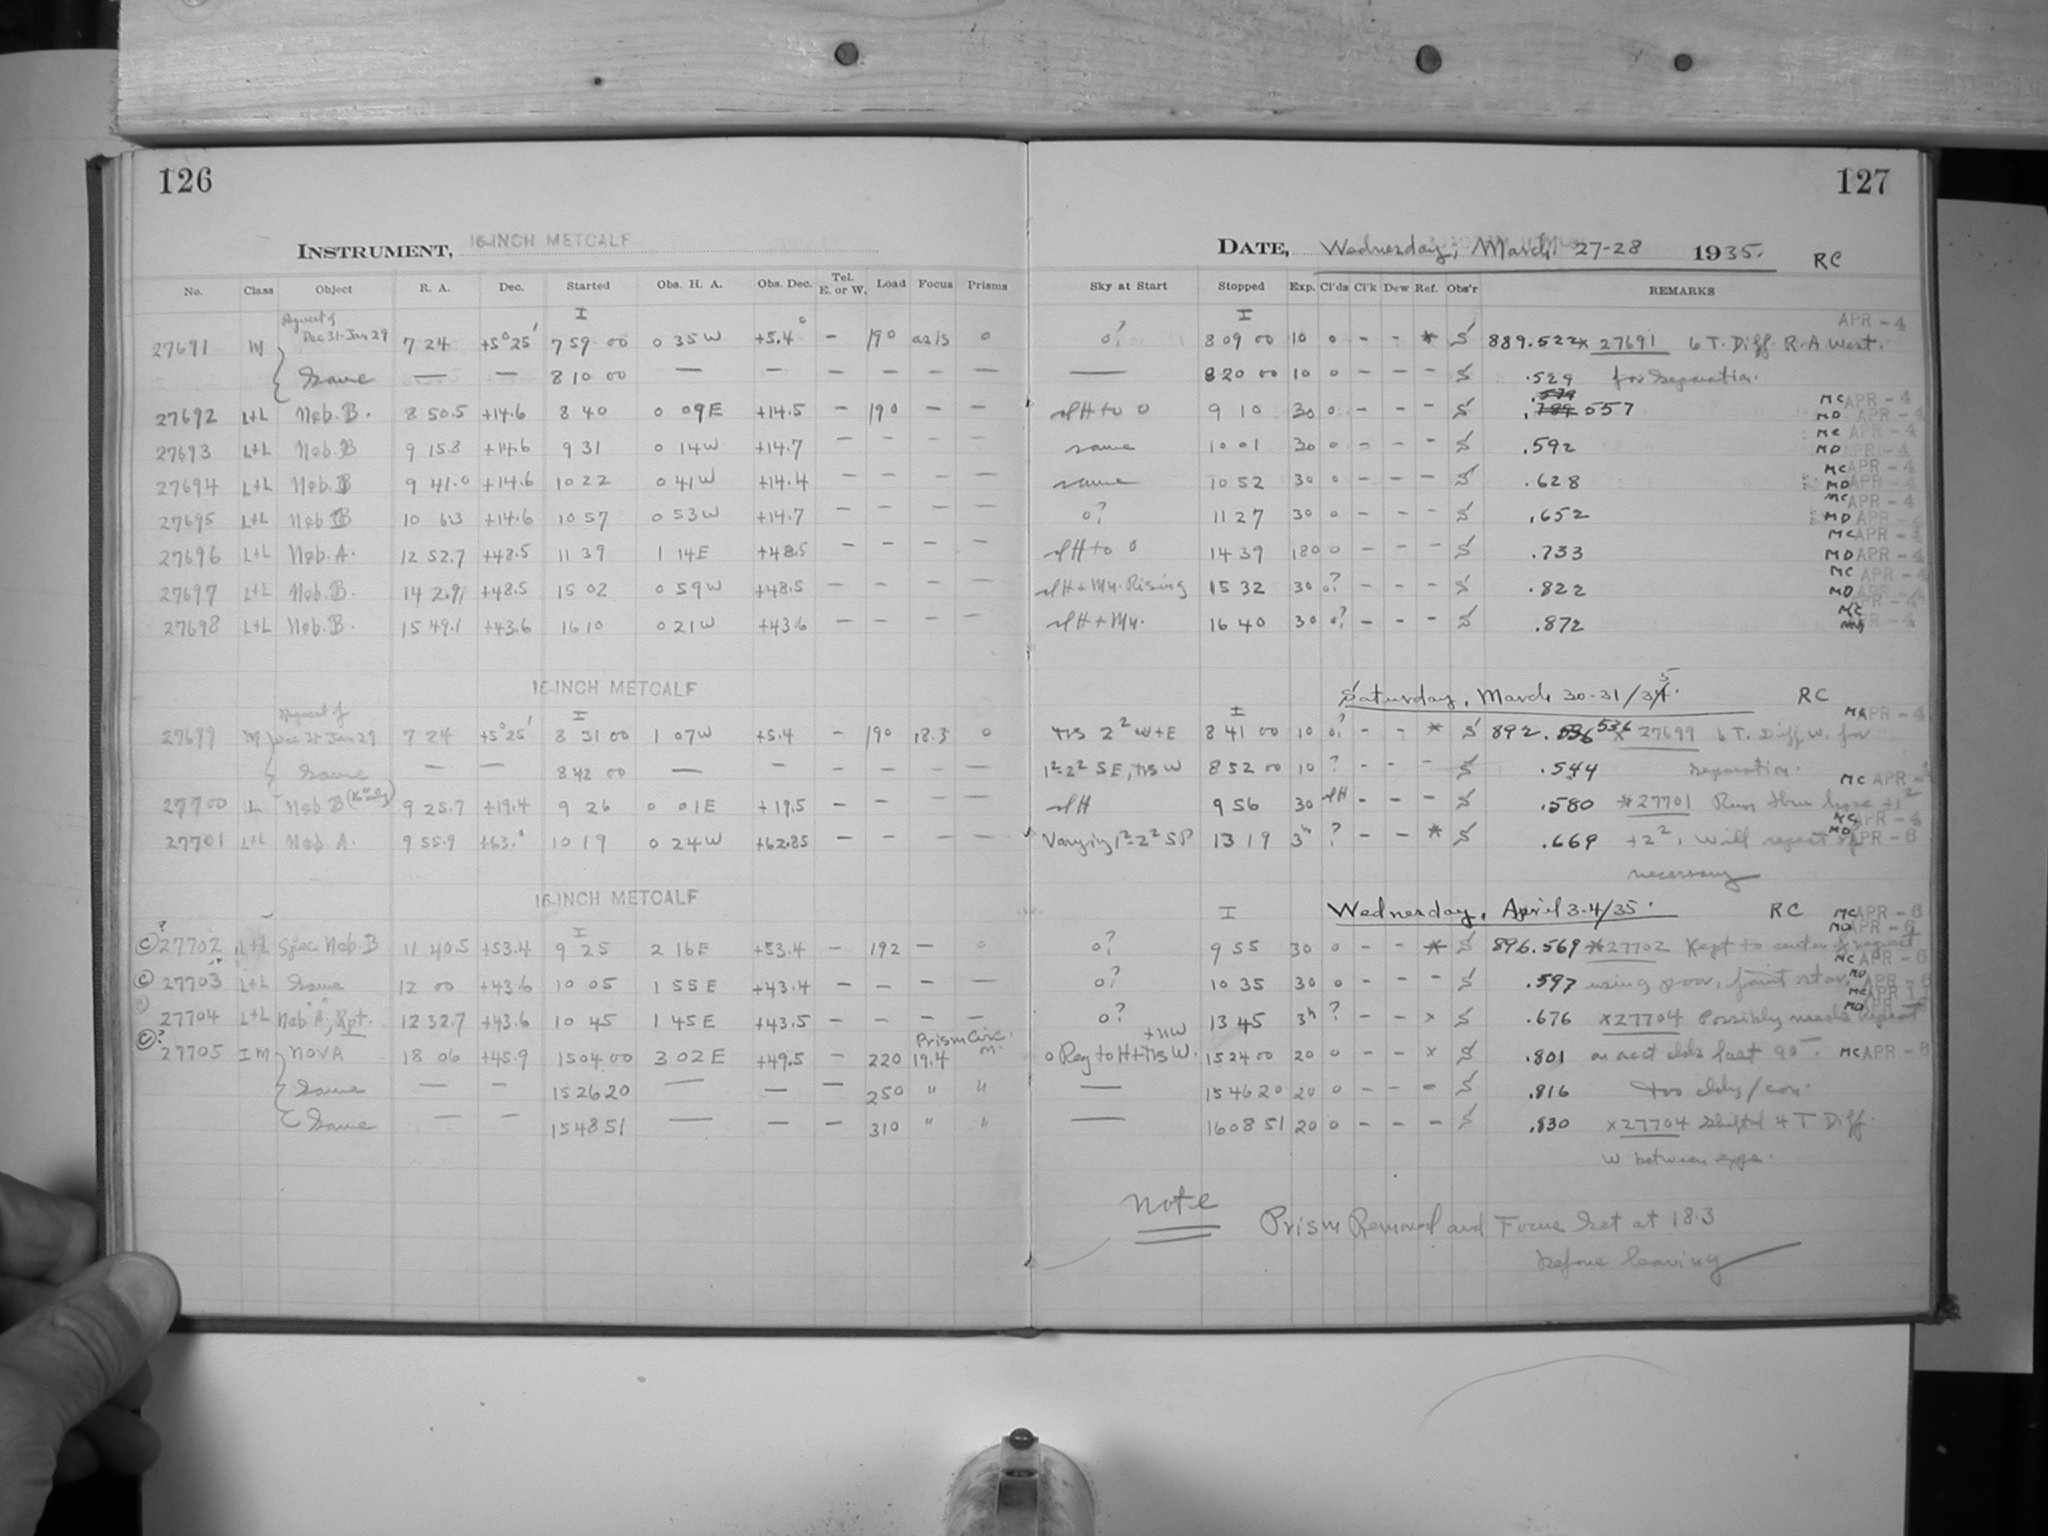 126
127
INSTRUMENT, 16-INCH METCALF DATE, Wednesday, March 27-28 1935. RC
No. Class Object R. A. Dec. Started Obs. H. A. Obs. Dec. Tel. E. or W. Load Focus Prisms Sky at Start Stopped Exp. Cl'ds Cl'k Dew Ref. Obs'r REMARKS
I I APR - 4
27691 M Request of Dec 31-Jan 29 7 24 +5° 25' 7 59 00 0 35 W +5.4° - 190 0 0? 8 09 00 10 0 - - * S 889.522 * 27691 6 T. Diff. R.A West.
Same — — 8 10 00 — — - — — — — — 8 20 00 10 0 - - - S .529 for separation.
27692 L+L Neb. B. 8 50.5 +14.6 8 40 0 09 E +14.5 - 190 - - H to 0 9 10 30 0 - - - S .557 MC APR - 4 MD
27693 L+L Neb. B 9 15.8 +14.6 9 31 0 14 W +14.7 - - - - same 10 01 30 0 - - - S .592 MC APR - 4 MD
27694 L+L Neb. B 9 41.0 +14.6 10 22 0 41 W +14.4 - - - - same 10 52 30 0 - - - S .628 MC APR - 4 MD
27695 L+L Neb B 10 6.3 +14.6 10 57 0 53 W +14.7 - - - - 0? 11 27 30 0 - - - S .652 MC APR - 4 MD
27696 L+L Neb. A. 12 52.7 +48.5 11 39 1 14 E +48.5 - - - - H to 0 14 39 180 0 - - - S .733 MC APR - 4 MD
27697 L+L Neb. B. 14 2.9 +48.5 15 02 0 59 W +48.5 - - - - H + Mn. Rising 15 32 30 0? - - - S .822 MC APR - 4 MD
27698 L+L Neb. B. 15 49.1 +43.6 16 10 0 21 W +43.6 - - - - H + Mn. 16 40 30 0? - - - S .872 MC APR - 4
16-INCH METCALF Saturday, March 30-31/35. RC
I I APR - 4
27699 M Request of Dec 31-Jan 29 7 24 +5° 25' 8 31 00 1 07 W +5.4 - 190 18.3 0 2² W+E 8 41 00 10 0? - - * S 892.536 * 27699 6 T. Diff W. for
Same — — 8 42 00 — - - - - - 1²-2² SE, W 8 52 00 10 ? - - - S .544 separation.
27700 IL Neb B (16" only) 9 25.7 +19.4 9 26 0 01 E +19.5 - - - - H 9 56 30 H - - - S .580 * 27701 Run thru haze +1² MC APR - 4
27701 L+L Neb A. 9 55.9 +63.0 10 19 0 24 W +62.85 - - - - Varying 1²-2² SP 13 19 3h ? - - * S .669 +2², will repeat if MC MD APR - 6
necessary
16-INCH METCALF Wednesday, April 3-4/35. RC
I I
©? 27702 L+L Spec Neb. B 11 40.5 +53.4 9 25 2 16 E +53.4 - 192 - 0 0? 9 55 30 0 - - * S 896.569 * 27702 Kept to center of request MC APR - 6 MD
© 27703 L+L Same 12 00 +43.6 10 05 1 55 E +43.4 - - - - 0? 10 35 30 0 - - - S .597 using poor, faint star. MC APR - 6 MD
© 27704 L+L Neb "A", Rpt. 12 32.7 +43.6 10 45 1 45 E +43.5 - - - - 0? 13 45 3h ? - - x S .676 x 27704 Possibly needs repeat MC MD
©? 27705 IM NOVA 18 06 +45.9 15 04 00 3 02 E +49.5 - 220 19.4 Prism Circ. on. 15 24 00 20 0 - - x S .801 last 90 MC APR - 6
Same — — 15 26 20 — — - 250 " " — 15 46 20 20 0 - - - S .816
Same — — 15 48 51 — — - 310 " " — 16 08 51 20 0 - - - S .830 x 27704 Shifted 4 T Diff.
W between exps.
Note Prism Removed and Focus Set at 18.3
before leaving